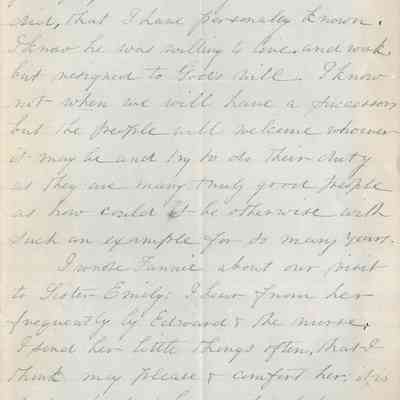 and, that I have personally known.
I know he was willing to live and work
but resigned to God's will. I know
not when we will have a successor
but the people will welcome whoever
it may be and try to do their duty
as they are many truly good people
as how could it be otherwise with
such an example for so many years.
I wrote Fannie about our visit
to Sister Emily; I hear from her
frequently by Edward & the nurse.
I send her little things often, that I
think may please & comfort her, it is